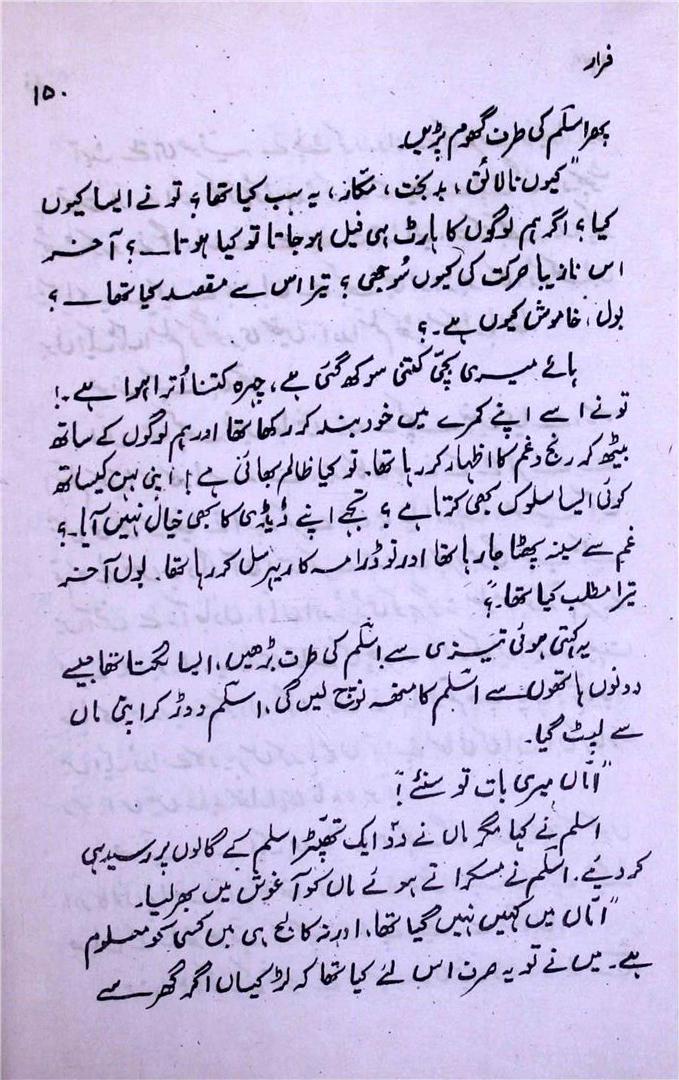 فرار
۱۵۰
پھر اسلم کی طرف گھوم پڑیں۔
"کیوں نالائق، بدبخت، مکار، یہ سب کیا تھا؟ تو نے ایسا کیوں
کیا؟ اگر ہم لوگوں کا ہارٹ ہی فیل ہو جاتا تو کیا ہوتا۔؟ آخر
اس نازیبا حرکت کی کیوں سُوجھی؟ تیرا اس سے مقصد کیا تھا۔؟
بول، خاموش کیوں ہے۔؟
ہائے میری بچّی کتنی سوکھ گئی ہے، چہرہ کتنا اُترا ہوا ہے۔!
تو نے اسے اپنے کمرے میں خود بند کر رکھا تھا اور ہم لوگوں کے ساتھ
بیٹھ کر رنج و غم کا اظہار کر رہا تھا۔ تو کیا ظالم بھائی ہے! اپنی بہن کیساتھ
کوئی ایسا سلوک بھی کرتا ہے؟ تجھے اپنے ڈیڈی کا بھی خیال نہیں آیا۔؟
غم سے سینہ پھٹا جا رہا تھا اور تو ڈرامہ کا ریہرسل کر رہا تھا۔ بول آخر
تیرا مطلب کیا تھا۔؟"
یہ کہتی ہوئی تیزی سے اسلم کی طرف بڑھیں، ایسا لگتا تھا جیسے
دونوں ہاتھوں سے اسلم کا منھ نوچ لیں گی، اسلم دوڑ کر اپنی ماں
سے لپٹ گیا۔
"امّاں میری بات تو سنئے!"
اسلم نے کہا مگر ماں نے دو ایک تھپّڑ اسلم کے گالوں پر رسید ہی
کر دیئے۔ اسلم نے مسکراتے ہوئے ماں کو آغوش میں بھر لیا۔
"امّاں میں کہیں نہیں گیا تھا، اور نہ کالج ہی میں کسی کو معلوم
ہے۔ میں نے تو یہ صرف اس لئے کیا تھا کہ لڑکیاں اگر گھر سے